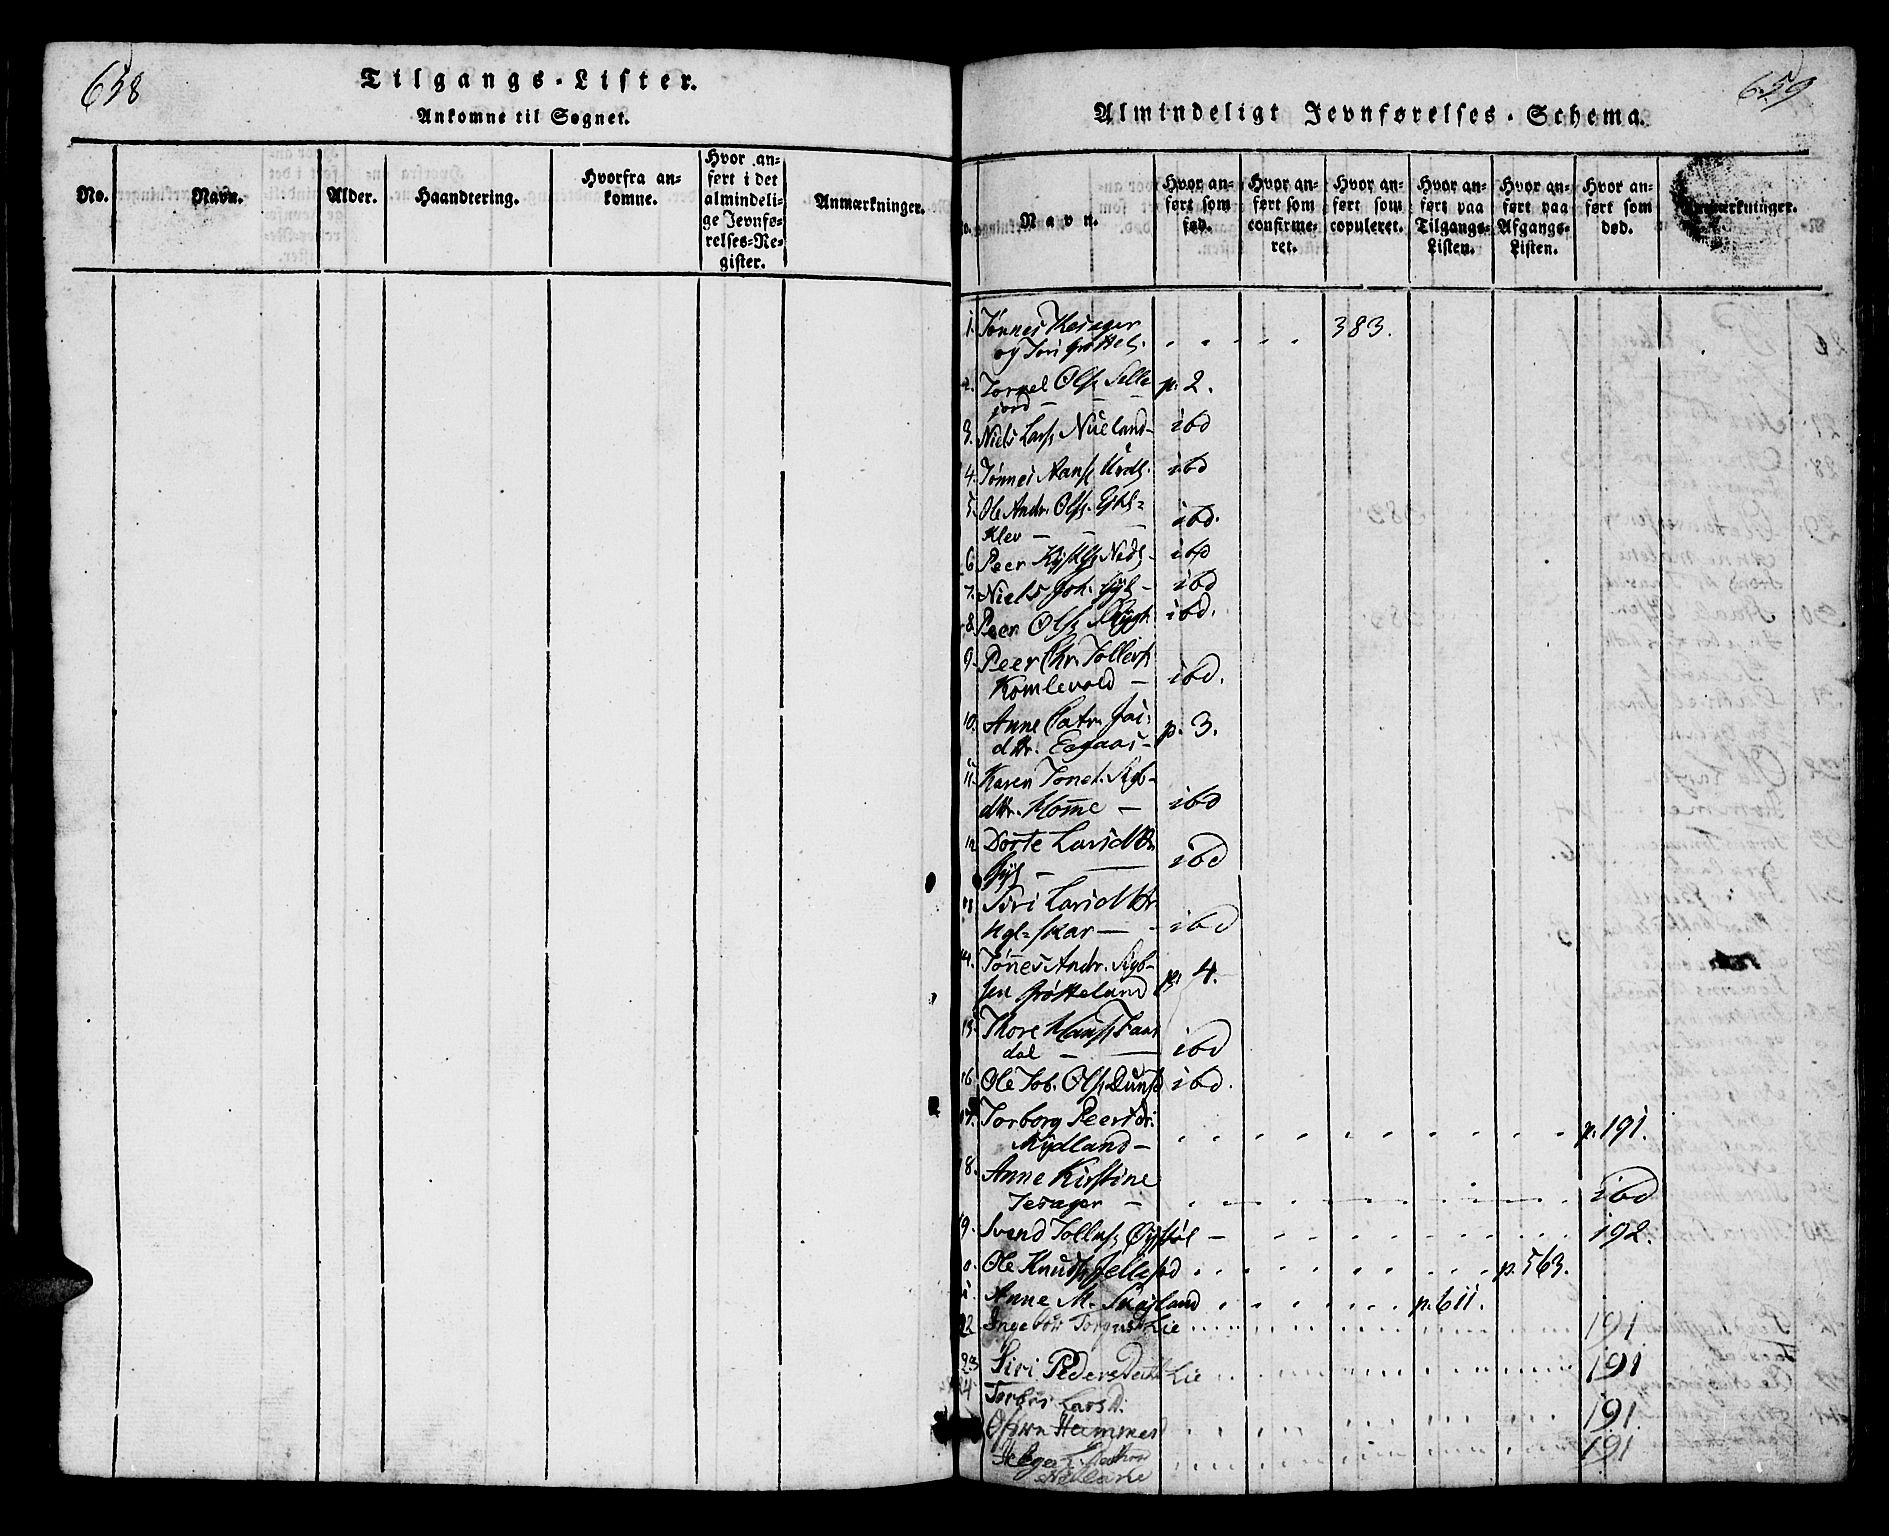 658
Tilgangs-Lister.
Ankomne til Sognet.
No.
Navn.
Alder.
Haandtering.
Hvorfra an-
komne.
Hvor an-
ført i det
almindeli-
ge Jevnfø-
relses-Re-
gister.
Anmærkninger.
659
Almindeligt Jevnførelses-Schema.
Navn.
Hvor an-
ført som
fød.
Hvor an-
ført som
confirme-
ret.
Hvor an-
ført som
copuleret.
Hvor an-
ført paa
Tilgangs-
Listen.
Hvor an-
ført paa
Afgangs-
Listen.
Hvor an-
ført som
død.
1. Tönnes Tesager
og Siri Grøttel. 383.
2. Tornel Ols. Selle
jord — p. 2.
3. Niels Lars. Nüeland — ibd
4. Tönnes Hans. Urdl. ibd
5. Ole Andr. Ols. Eghl=
Klev — ibd.
6 Peer Nedl. ibd
7. Niels Joh. ibd
8. Peer Ols. ibd.
9. Peer Chr. Tollevs.
Komlevold — ibd.
10. Anne Catr.
dttr. Eegaas — p. 3.
11. Karen Tonet. Ayb-
dttr. Home — ibd
12 Dorte Larsdttr
— ibd
Siri Larsdttr
Ugl=skar — ibd
14. Tönnes Andr. Ayb-
sen Grötteland p. 4.
15. Thore Hans. Faar
dal — ibd
16 Ole Tob. Ols. Dunsd ibd.
17. Torborg Peersdr.
Mydland — p. 191.
18. Anne Kirstine
Tesager — ibd
19. Svend Tollefs. Öystöl — 192.
Ole Knuds. p. 563.
Anne M. Skogland p. 611.
22 Ingebor Lie 191
23 Siri Peders Datter Lie 191
24 Torbor Lars D.
Hammer 191.
191